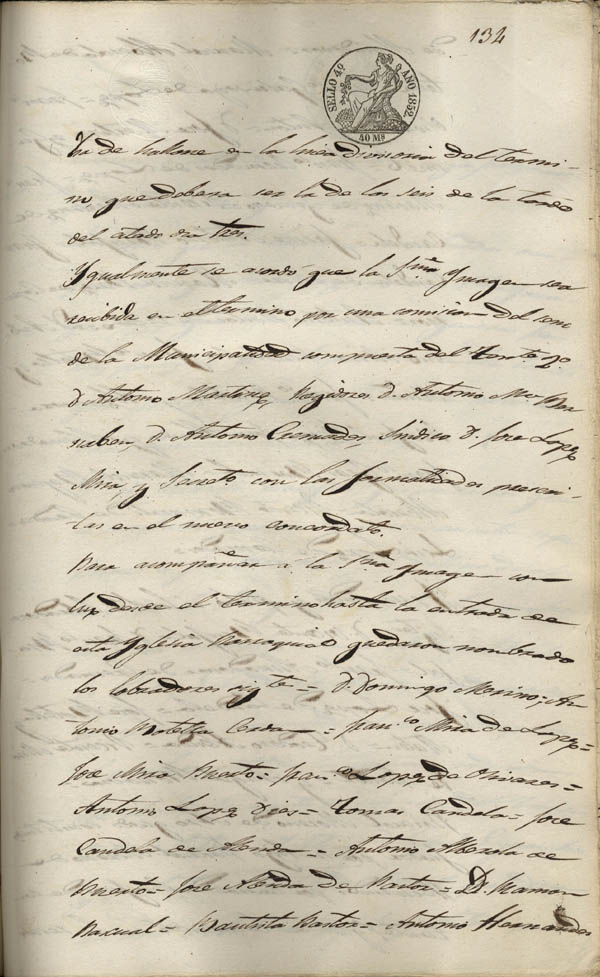 134
SELLO 4º AÑO 1852
40 Ms
ha de hallarse en la linea divisoria del termi-
no, que debera ser la de las seis de la tarde
del citado dia tres.
Ygualmente se acordó que la Sma Ymagen sea
recibida en el termino por una comision del seno
de la Municipalidad compuesta del Tente 2º
D. Antonio Martinez, Regidores D. Antonio Ma
D. Antonio Cremades, Sindico D. Jose Lopez
Mira, y Secreto con las formalidades prescri-
tas en el nuevo concordato.
Para acompañar a la Sma Ymagen con
luz desde el termino hasta la entrada de
esta Yglesia Parroquial quedaron nombrados
los labradores sigtes = D. Domingo Merino = An-
tonio Botella Cerda = Franco Mira de Lopez =
Jose Mira Puerto = Franco Lopez de Olivares =
Antonio Lopez Dies = Tomas Candela = Jose
Candela de Alenda = Antonio Alberola de
Puerto = Jose Alenda de Pastor = D. Ramon
Pascual = Bautista Pastor = Antonio Hernandes